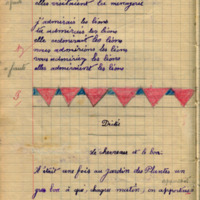 elles visitaient la ménagerie
j'admirais les lions
tu admirais les lions
elle admirait les lions
nous admirions les lions
vous admiriez les lions
elles admiraient les lions
Dictée
Le chevreau et le lion
Il était une fois au jardin des Plantes un
gros lion à qui, chaque matin, on apportait